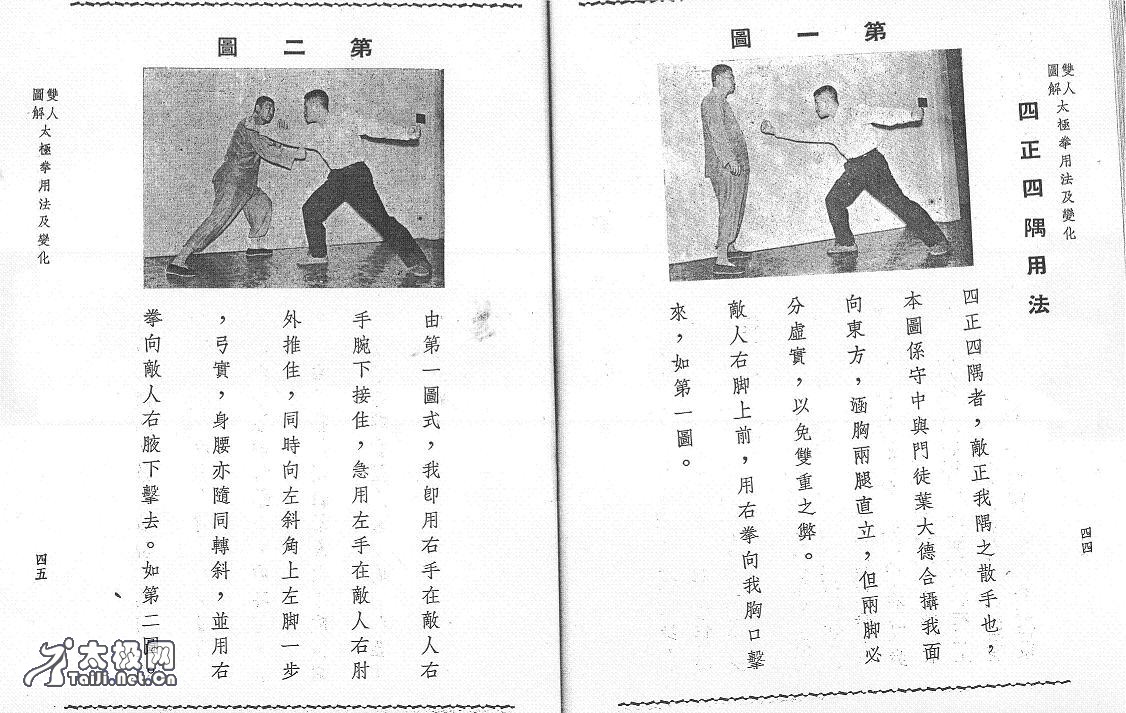 雙人圖解太極拳用法及變化
四正四隅用法
第一圖
四正四隅者，敵正我隅之散手也，
本圖係守中與門徒葉大德合攝我面
向東方，涵胸兩腿直立，但兩脚必
分虛實，以免雙重之弊。
敵人右脚上前，用右拳向我胸口擊
來，如第一圖。
四四
第二圖
由第一圖式，我卽用右手在敵人右
手腕下接住，急用左手在敵人右肘
外推住，同時向左斜角上左脚一步
，弓實，身腰亦隨同轉斜，並用右
拳向敵人右腋下擊去。如第二圖
雙人圖解太極拳用法及變化
四五
太极网
TaiJi.Net.Cn